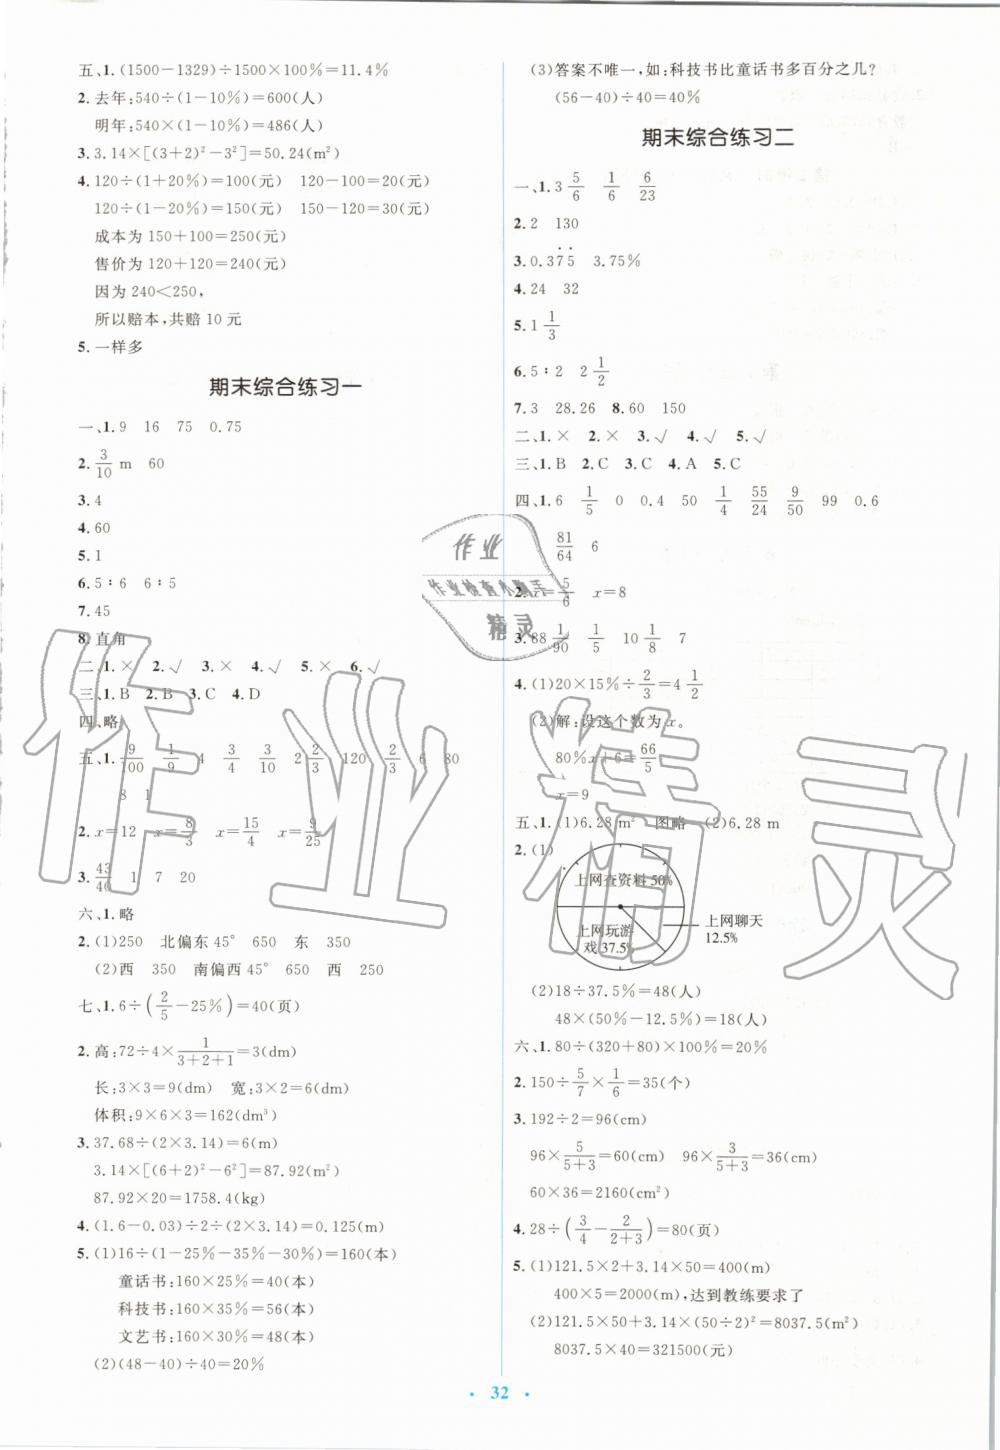 五、1. (1500-1329)÷1500×100%=11.4%
2. 去年:540÷(1-10%)=600(人)
明年:540×(1-10%)=486(人)
3. 3.14×[(3+2)²-3²]=50.24(m²)
4. 120÷(1+20%)=100(元) 120-100=20(元)
120÷(1-20%)=150(元) 150-120=30(元)
成本为 150+100=250(元)
售价为 120+120=240(元)
因为 240<250,
所以赔本,共赔 10 元
5. 一样多
期末综合练习一
一、1. 9 16 75 0.75
2. 3/10 m 60
3. 4
4. 60
5. 1
6. 5∶6 6∶5
7. 45
8. 直角
二、1. × 2. √ 3. × 4. √ 5. × 6. √
三、1. B 2. B 3. C 4. D
四、略
五、1. 9/100 1/9 4 3/4 3/10 2 2/3 120 2/3 6 80
8 1
2. x=12 x=8/3 x=15/4 x=9/25
3. 43/40 1 7 20
六、1. 略
2. (1)250 北偏东 45° 650 东 350
(2)西 350 南偏西 45° 650 西 250
七、1. 6÷(2/5-25%)=40(页)
2. 高:72÷4×1/(3+2+1)=3(dm)
长:3×3=9(dm) 宽:3×2=6(dm)
体积:9×6×3=162(dm³)
3. 37.68÷(2×3.14)=6(m)
3.14×[(6+2)²-6²]=87.92(m²)
87.92×20=1758.4(kg)
4. (1.6-0.03)÷2÷(2×3.14)=0.125(m)
5. (1)16÷(1-25%-35%-30%)=160(本)
童话书:160×25%=40(本)
科技书:160×35%=56(本)
文艺书:160×30%=48(本)
(2)(48-40)÷40=20%
(3)答案不唯一,如:科技书比童话书多百分之几?
(56-40)÷40=40%
期末综合练习二
一、1. 3 5/6 1/6 6/23
2. 2 130
3. 0.3̇75̇ 3.75%
4. 24 32
5. 1 1/3
6. 5∶2 2 1/2
7. 3 28.26 8. 60 150
二、1. × 2. × 3. √ 4. √ 5. √
三、1. B 2. C 3. C 4. A 5. C
四、1. 6 1/5 0 0.4 50 1/4 55/24 9/50 99 0.6
81/64 6
2. x=5/6 x=8
3. 88 1/90 1/5 10 1/8 7
4. (1)20×15%÷2/3=4 1/2
(2)解:设这个数为 x。
80%x+6=66/5
x=9
五、1. (1)6.28 m² 图略 (2)6.28 m
2. (1)
上网查资料 50%
上网玩游
戏 37.5%
上网聊天
12.5%
(2)18÷37.5%=48(人)
48×(50%-12.5%)=18(人)
六、1. 80÷(320+80)×100%=20%
2. 150÷5/7×1/6=35(个)
3. 192÷2=96(cm)
96×5/(5+3)=60(cm) 96×3/(5+3)=36(cm)
60×36=2160(cm²)
4. 28÷(3/4-2/(2+3))=80(页)
5. (1)121.5×2+3.14×50=400(m)
400×5=2000(m),达到教练要求了
(2)121.5×50+3.14×(50÷2)²=8037.5(m²)
8037.5×40=321500(元)
· 32 ·
作业
作业检查小帮手
精灵
作业精灵